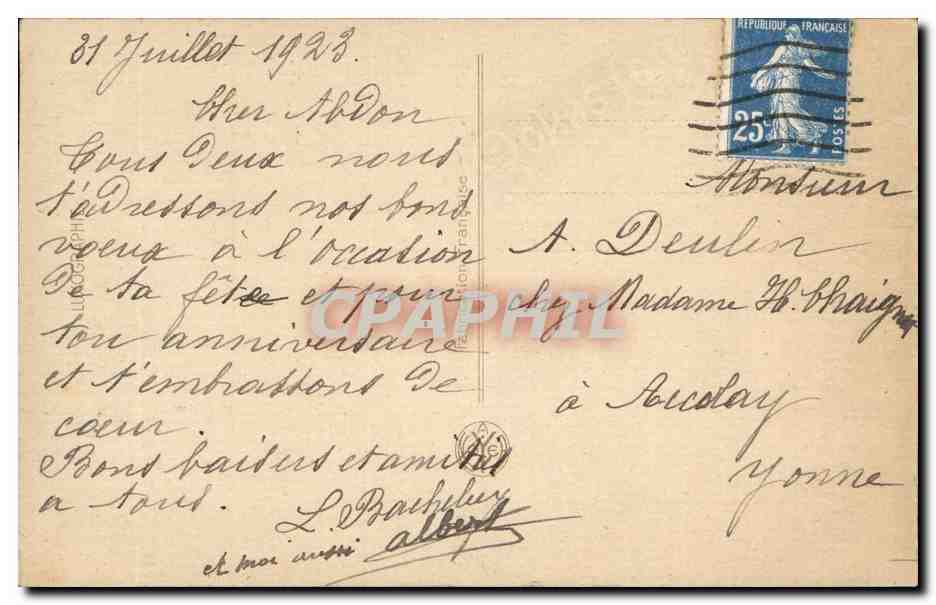 31 Juillet 1923.
Cher Abdon
Tous Deux nous
t'adressons nos bons
vœux à l'occasion
De ta fête et pour
ton anniversaire
et t'embrassons De
cœur.
Bons baisers et amitiés
a tous.
L. Bachelier
et moi aussi albert
RÉPUBLIQUE FRANÇAISE
25c
POSTES
Monsieur
A. Deulin
chez Madame H. Chaignet
à Accolay
Yonne
Fabrication Française
CPAPHIL